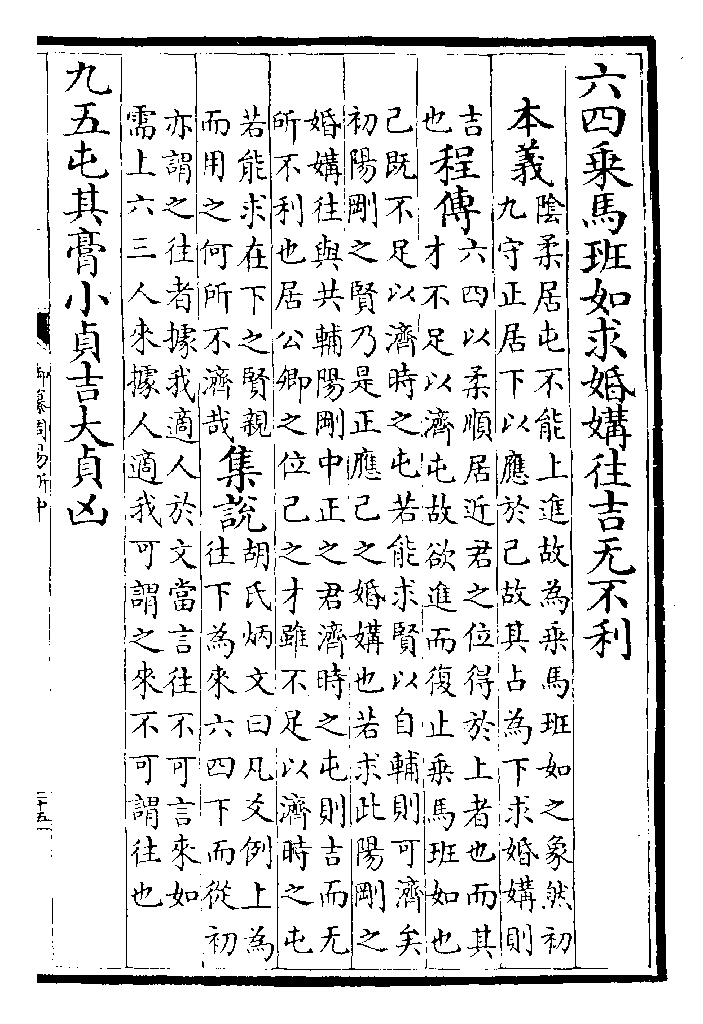 六四乘馬班如求婚媾往吉无不利
本義陰柔居屯不能上進故為乘馬班如之象然初
九守正居下以應於己故其占為下求婚媾則
吉
也程傳六四以柔順居近君之位得於上者也而其
才不足以濟屯故欲進而復止乘馬班如也
己既不足以濟時之屯若能求賢以自輔則可濟矣
初陽剛之賢乃是正應己之婚媾也若求此陽剛之
婚媾往與共輔陽剛中正之君濟時之屯則吉而无
所不利也居公卿之位己之才雖不足以濟時之屯
若能求在下之賢親
而用之何所不濟哉集說胡氏炳文曰凡爻例上為
往下為來六四下而從初
亦謂之往者據我適人於文當言往不可言來如
需上六三人來據人適我可謂之來不可謂往也
九五屯其膏小貞吉大貞凶
御纂周易折中
二十五